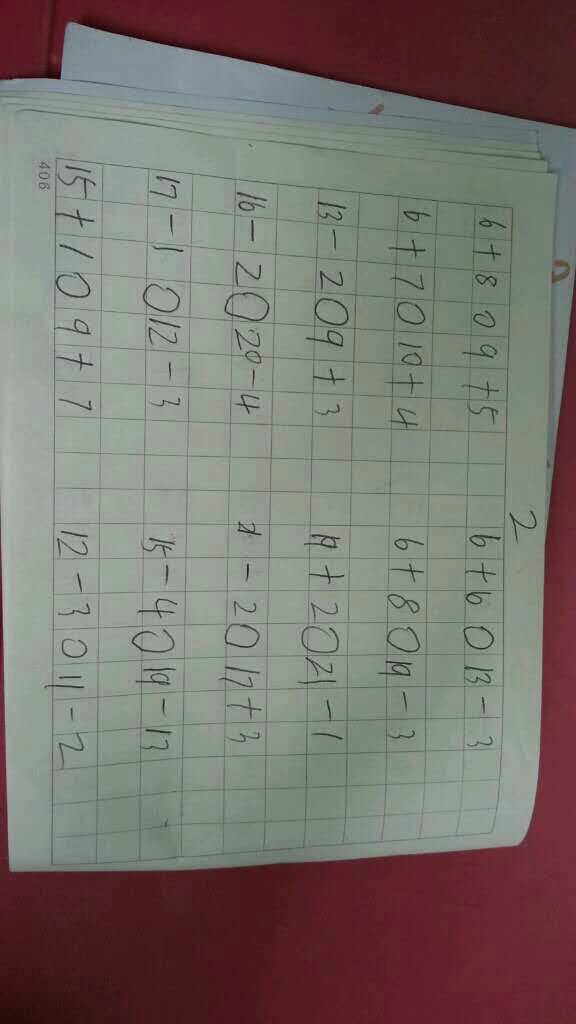 2
6+8○9+5 6+6○13-3
6+7○10+4 6+8○19-3
13-2○9+3 +2○21-1
16-2○20-4 -2○17+3
17-1○12-3 15-4○19-13
15+1○9+7 12-3○11-2
406